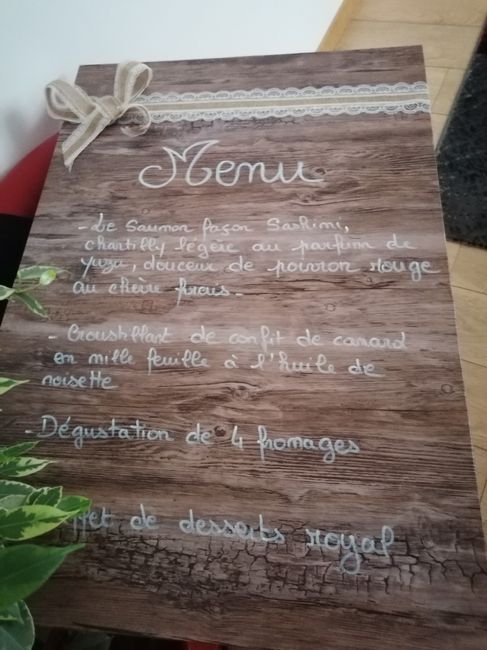 Menu
- Le Saumon façon Sashimi,
chantilly légère au parfum de
yuzu, douceur de poivron rouge
au chèvre frais -
- Croustillant de confit de canard
en mille feuille à l'huile de
noisette
- Dégustation de 4 fromages
de desserts royal